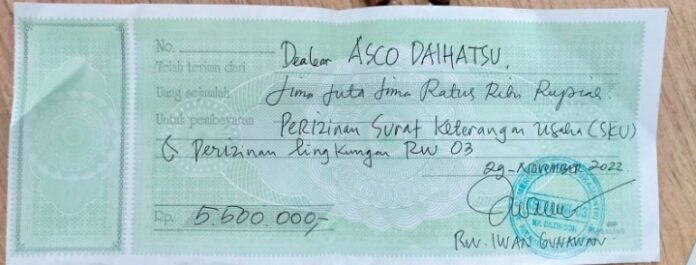 No. Dealer ASCO DAIHATSU,
Telah terima dari
Uang sejumlah Lima Juta Lima Ratus Ribu Rupiah
Untuk pembayaran PERIZINAN Surat Keterangan Usaha (SKU)
& Perizinan lingkungan RW 03
29-November 2022
Rp. 5.500.000,-
RW. IWAN GUNAWAN